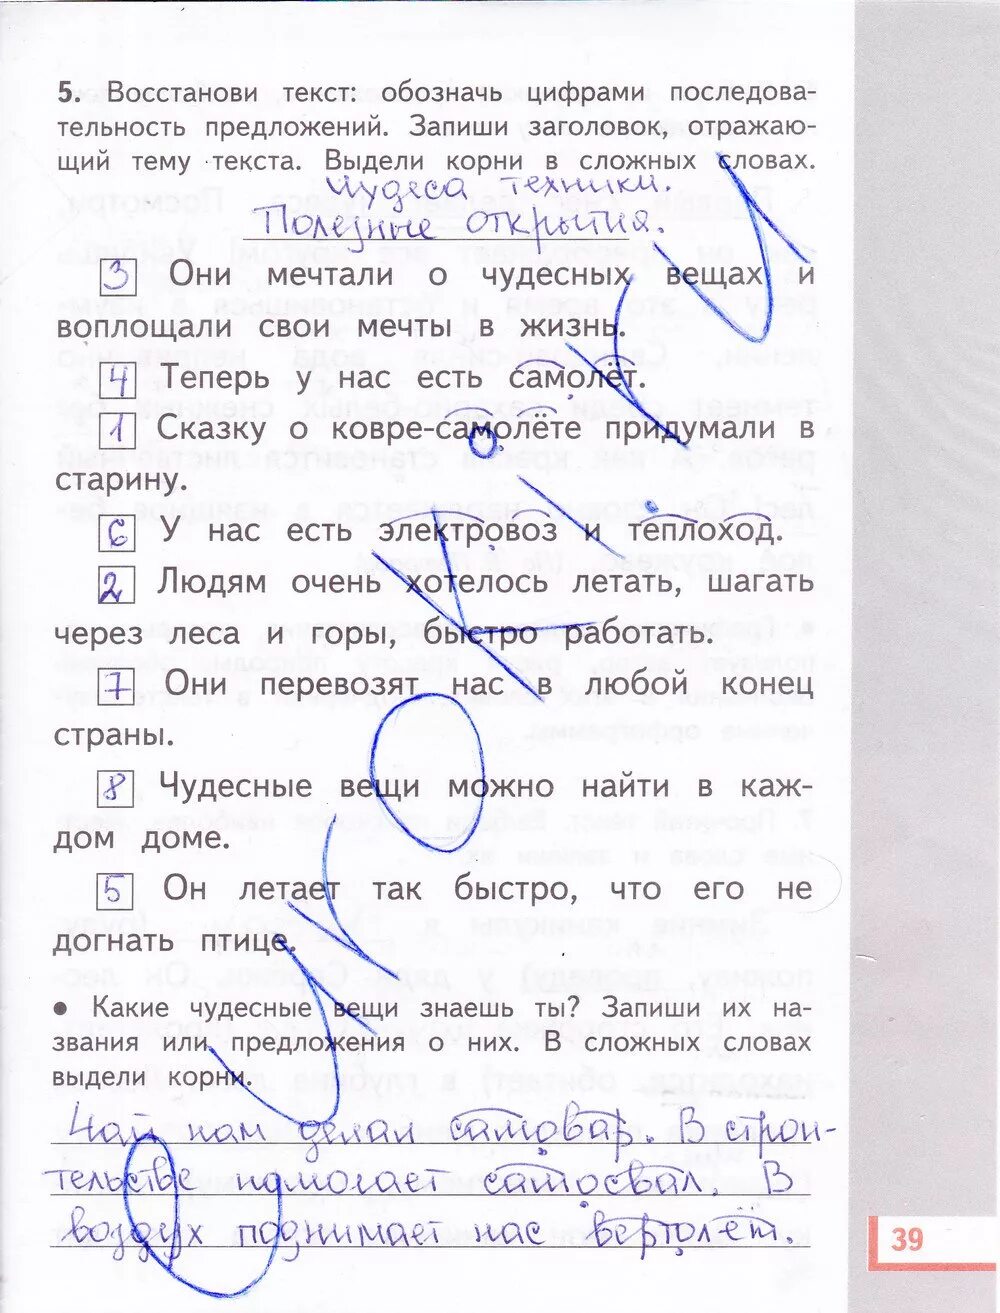 5. Восстанови текст: обозначь цифрами последова-
тельность предложений. Запиши заголовок, отражаю-
щий тему текста. Выдели корни в сложных словах.
Чудеса техники.
Полезные открытия.
3 Они мечтали о чудесных вещах и
воплощали свои мечты в жизнь.
4 Теперь у нас есть самолёт.
1 Сказку о ковре-самолёте придумали в
старину.
6 У нас есть электровоз и теплоход.
2 Людям очень хотелось летать, шагать
через леса и горы, быстро работать.
7 Они перевозят нас в любой конец
страны.
8 Чудесные вещи можно найти в каж-
дом доме.
5 Он летает так быстро, что его не
догнать птице.
• Какие чудесные вещи знаешь ты? Запиши их на-
звания или предложения о них. В сложных словах
выдели корни.
Чай нам делал самовар. В строи-
тельстве помогает самосвал. В
воздух поднимает нас вертолёт.
39